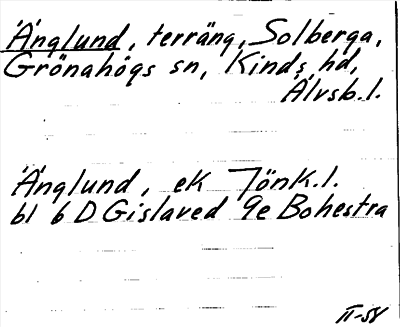 Änglund, terräng, Solberga,
Grönahögs sn, Kinds hd,
Älvsb.l.
Änglund, ek Jönk.l.
bl 6 D Gislaved 9e Bohestra
II-58